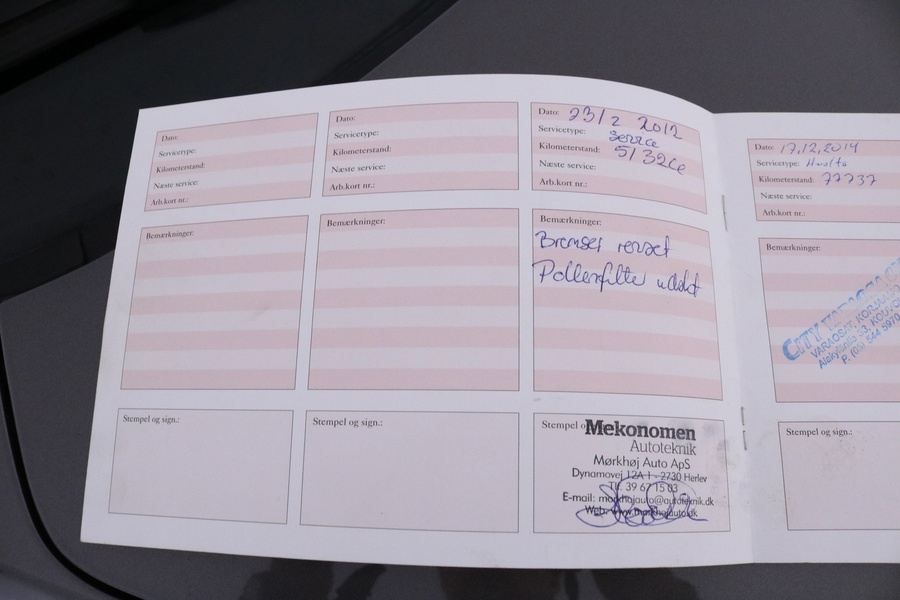 Dato:
Servicetype:
Kilometerstand:
Næste service:
Arb.kort nr.:
Bemærkninger:
Stempel og sign.:
Dato:
Servicetype:
Kilometerstand:
Næste service:
Arb.kort nr.:
Bemærkninger:
Stempel og sign.:
Dato: 23/2 2012
Servicetype: Service
Kilometerstand:
Næste service:
Arb.kort nr.:
Bemærkninger:
Bremser renset
Pollenfilter udskift
Stempel o
Mekonomen
Autoteknik
Mørkhøj Auto ApS
Dynamovej 12A 1 - 2730 Herlev
Tlf. 39 67 15 03
E-mail: morkhojauto@autoteknik.dk
Web: www.morkhojauto.dk
Dato: 17.12.2014
Servicetype: Huolto
Kilometerstand: 77737
Næste service:
Arb.kort nr.:
Bemærkninger:
CITY VARAOSA
VARAOSAT, KORJAAMO
P. (05) 544 5970
Stempel og sign.: